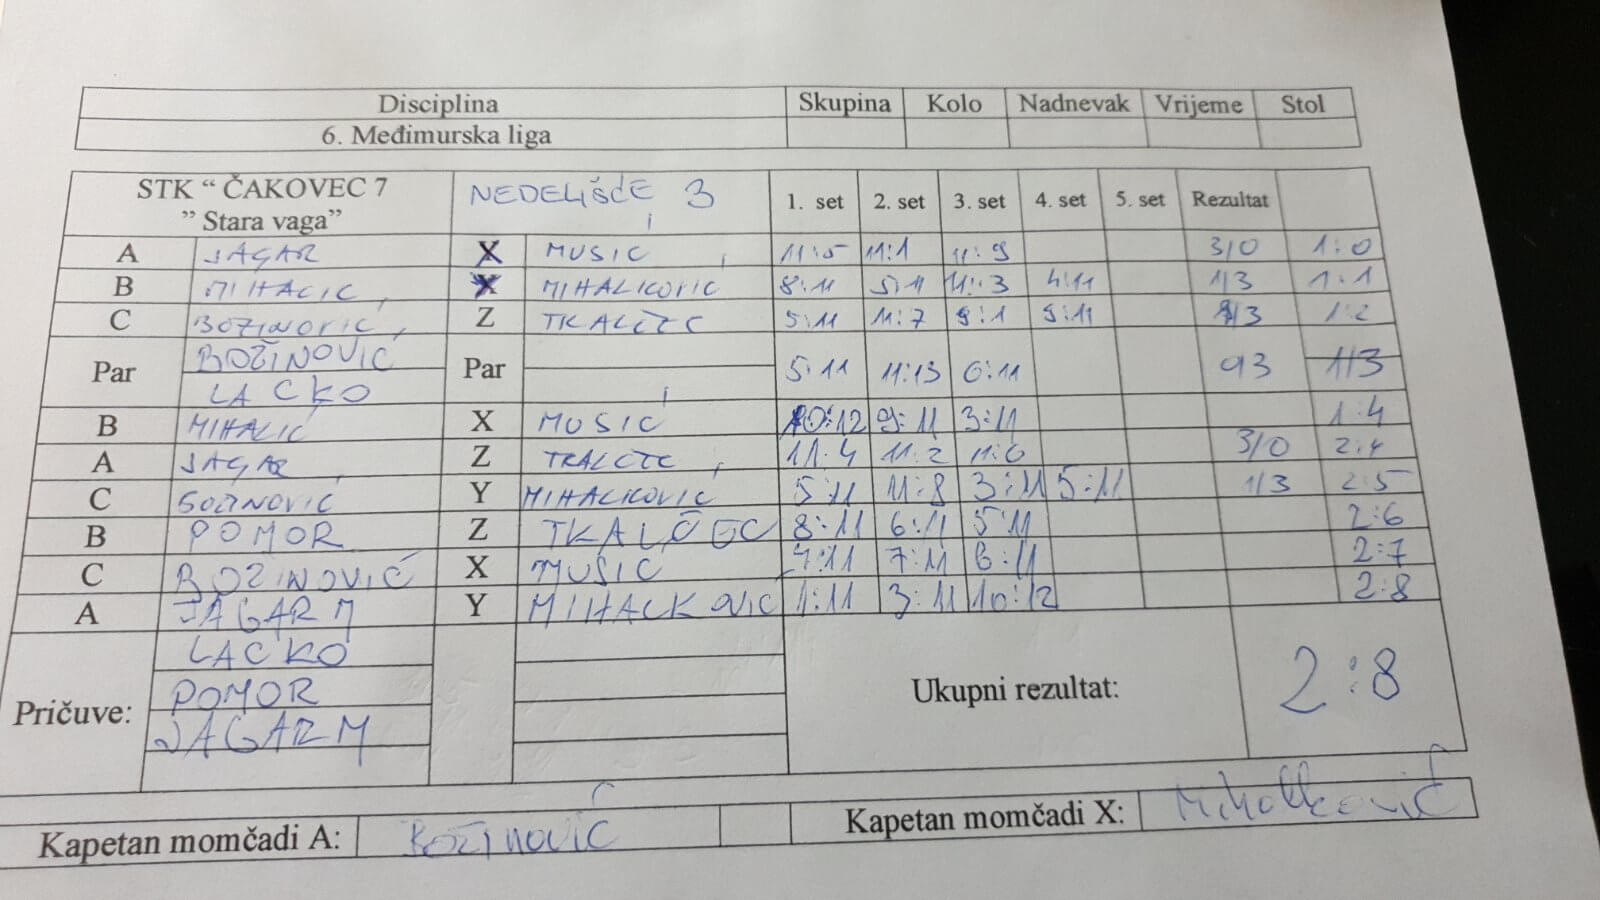 Disciplina Skupina Kolo Nadnevak Vrijeme Stol
6. Međimurska liga
STK “ ČAKOVEC 7 NEDELIŠĆE 3 1. set 2. set 3. set 4. set 5. set Rezultat
” Stara vaga”
A JAGAR X MUSIĆ 11:5 11:1 11:9 3/0 1:0
B MIHALIĆ X MIHALKOVIĆ 8:11 5:11 11:3 4:11 1/3 1:1
C BOŽINOVIĆ Z TKALČEC 5:11 11:7 9:11 1/3 1:2
BOŽINOVIĆ
Par Par 5:11 11:13 6:11 0/3 1/3
LACKO
B MIHALIĆ X MUSIĆ 10:12 9:11 3:11 1:4
A JAGAR Z TKALČEC 11:4 11:2 11:6 3/0 2:4
C BOŽINOVIĆ Y MIHALKOVIĆ 5:11 11:8 3:11 5:11 1/3 2:5
B POMOR Z TKALČEC 8:11 6:11 5:11 2:6
C BOŽINOVIĆ X MUSIĆ 7:11 6:11 2:7
A JAGAR M Y MIHALKOVIĆ 1:11 3:11 10:12 2:8
LACKO
POMOR
Pričuve: Ukupni rezultat: 2:8
JAGAR M
Kapetan momčadi A: BOŽINOVIĆ Kapetan momčadi X: Mihalković